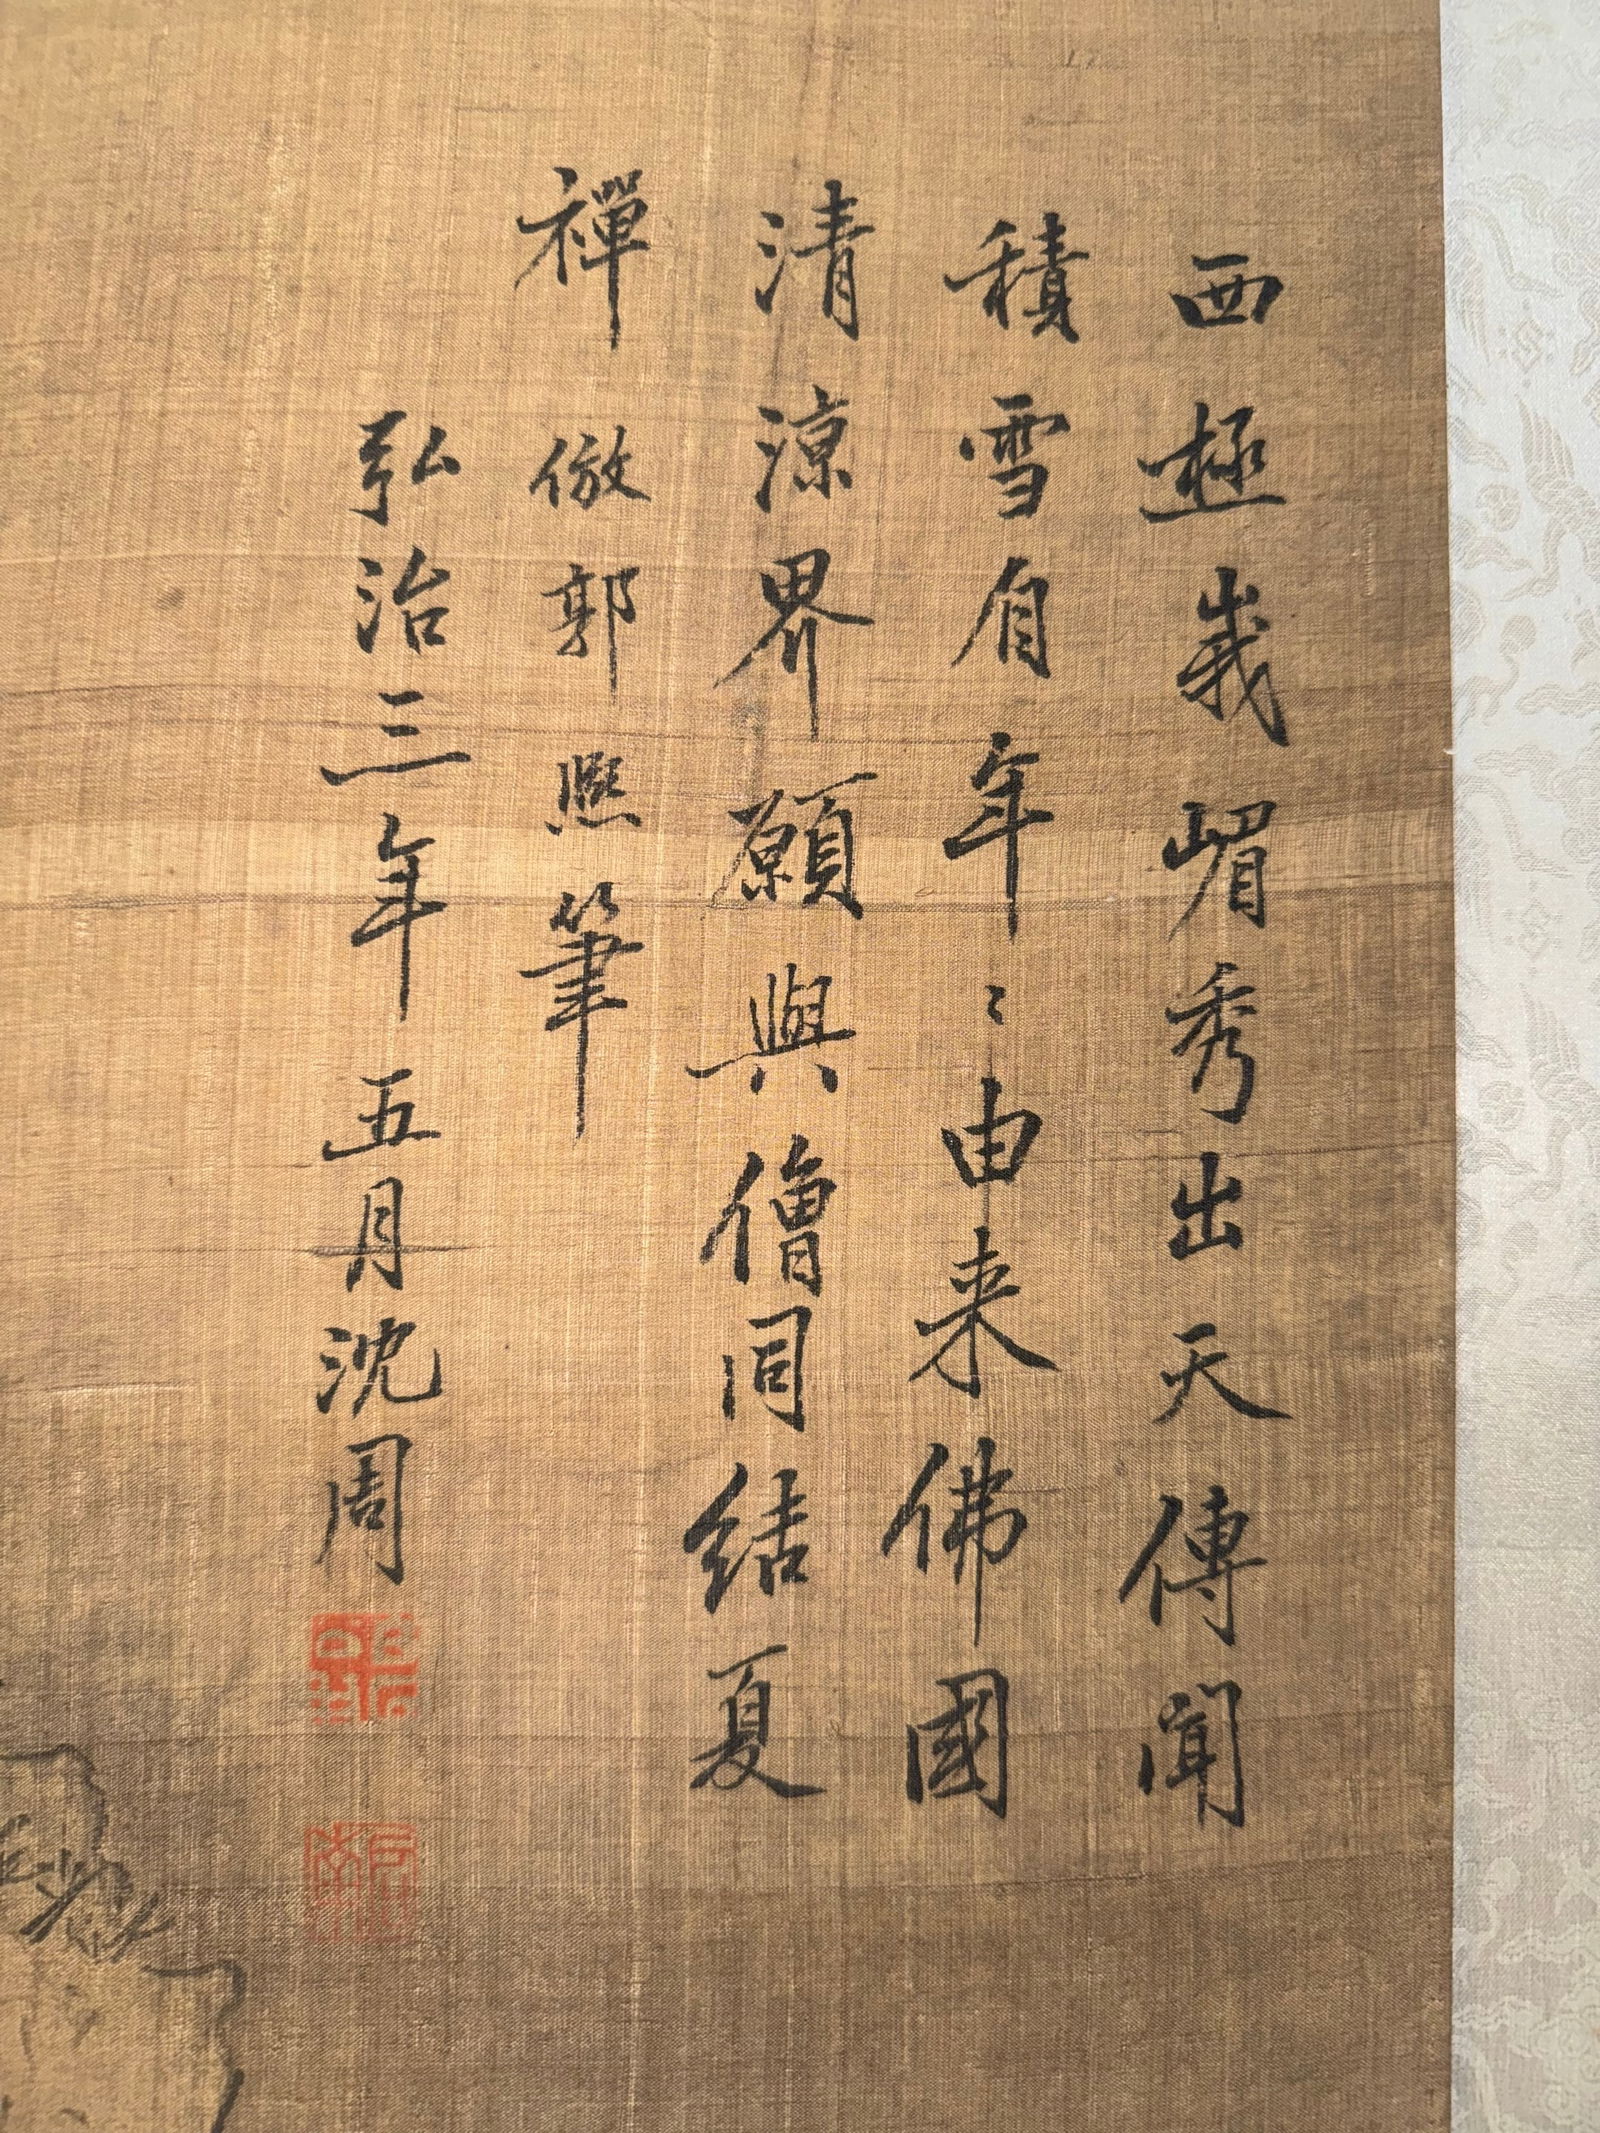 西極峩嵋秀出天傳聞
積雪自年〻由来佛國
清涼界願與僧同結夏
禪倣郭熙筆
弘治三年五月沈周